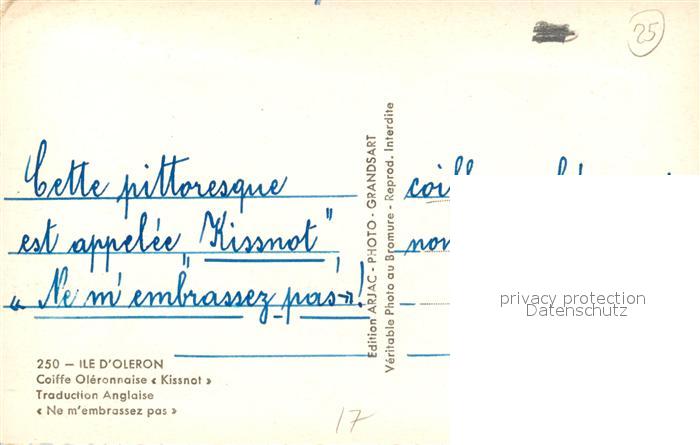 25
Cette pittoresque
est appelée "Kissnot"
« Ne m'embrassez pas »!
Edition ARJAC - PHOTO - GRANDSART
Véritable Photo au Bromure - Reprod. Interdite
privacy protection
Datenschutz
250 — ILE D'OLERON
Coiffe Oléronnaise « Kissnot »
Traduction Anglaise
« Ne m'embrassez pas »
17